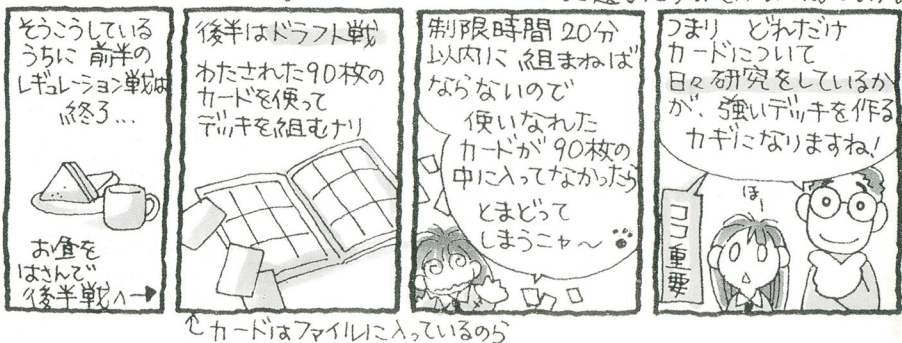 そうこうしている
うちに 前半の
レギュレーション戦は
終了...
お昼を
はさんで
後半戦へ→
後半はドラフト戦
わたされた90枚の
カードを使って
デッキを組むナリ
↑カードはファイルに入っているのら
制限時間 20分
以内に 組まねば
ならないので
使いなれた
カードが 90枚の
中に入ってなかったら
とまどって
しまうニャ〜
つまり どれだけ
カードについて
日々研究をしているか
が、強いデッキを作る
カギになりますね!
ココ重要
ほー